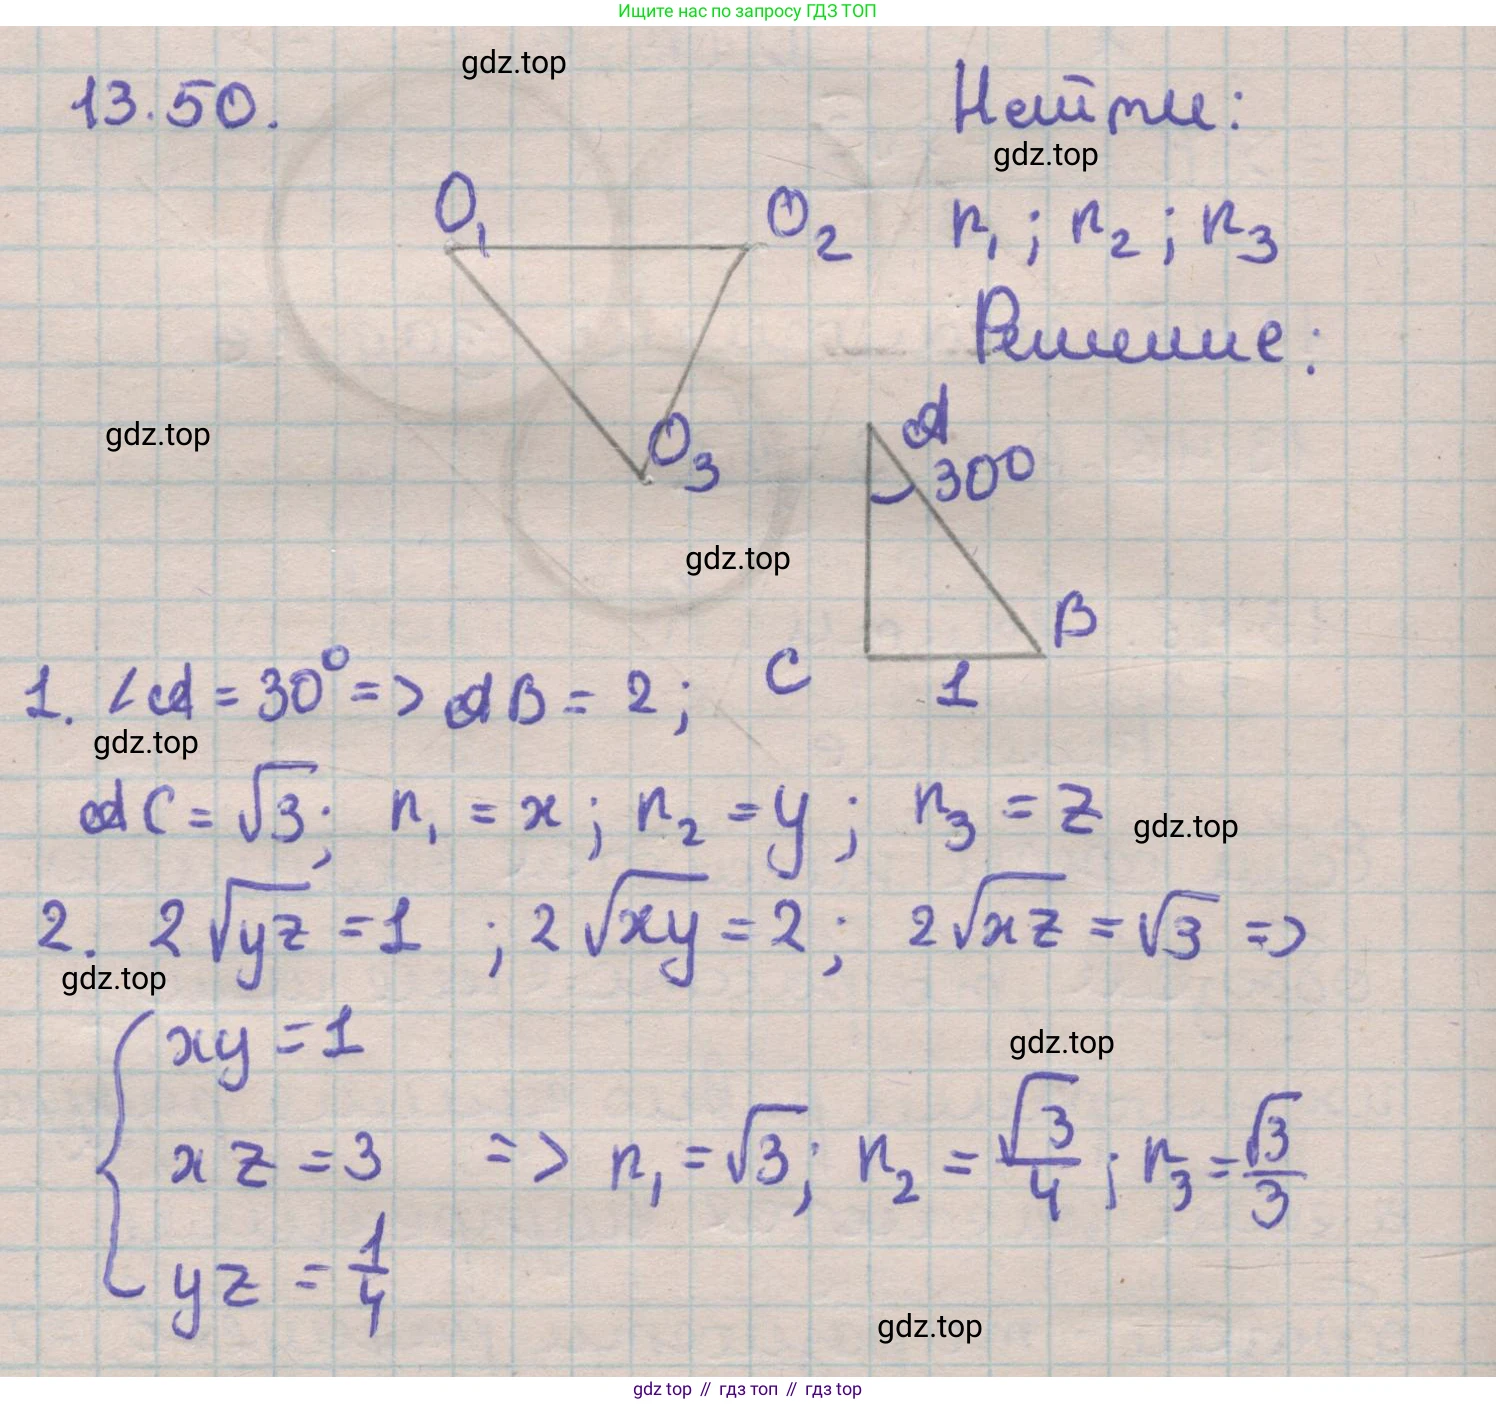 Ищите нас по запросу ГДЗ ТОП
gdz.top
13.50.
Найти:
gdz.top
O₁
O₂
r₁; r₂; r₃
Решение:
O₃
gdz.top
A
30⁰
gdz.top
B
C
1
1. ∠A = 30⁰ => AB = 2;
gdz.top
AC = √3; r₁ = x; r₂ = y; r₃ = z
gdz.top
2. 2√yz = 1 ; 2√xy = 2; 2√xz = √3 =>
gdz.top
{ xy = 1
gdz.top
xz = 3 => r₁ = √3; r₂ = √3/4; r₃ = √3/3
yz = 1/4
gdz.top
gdz top // гдз топ // гдз top